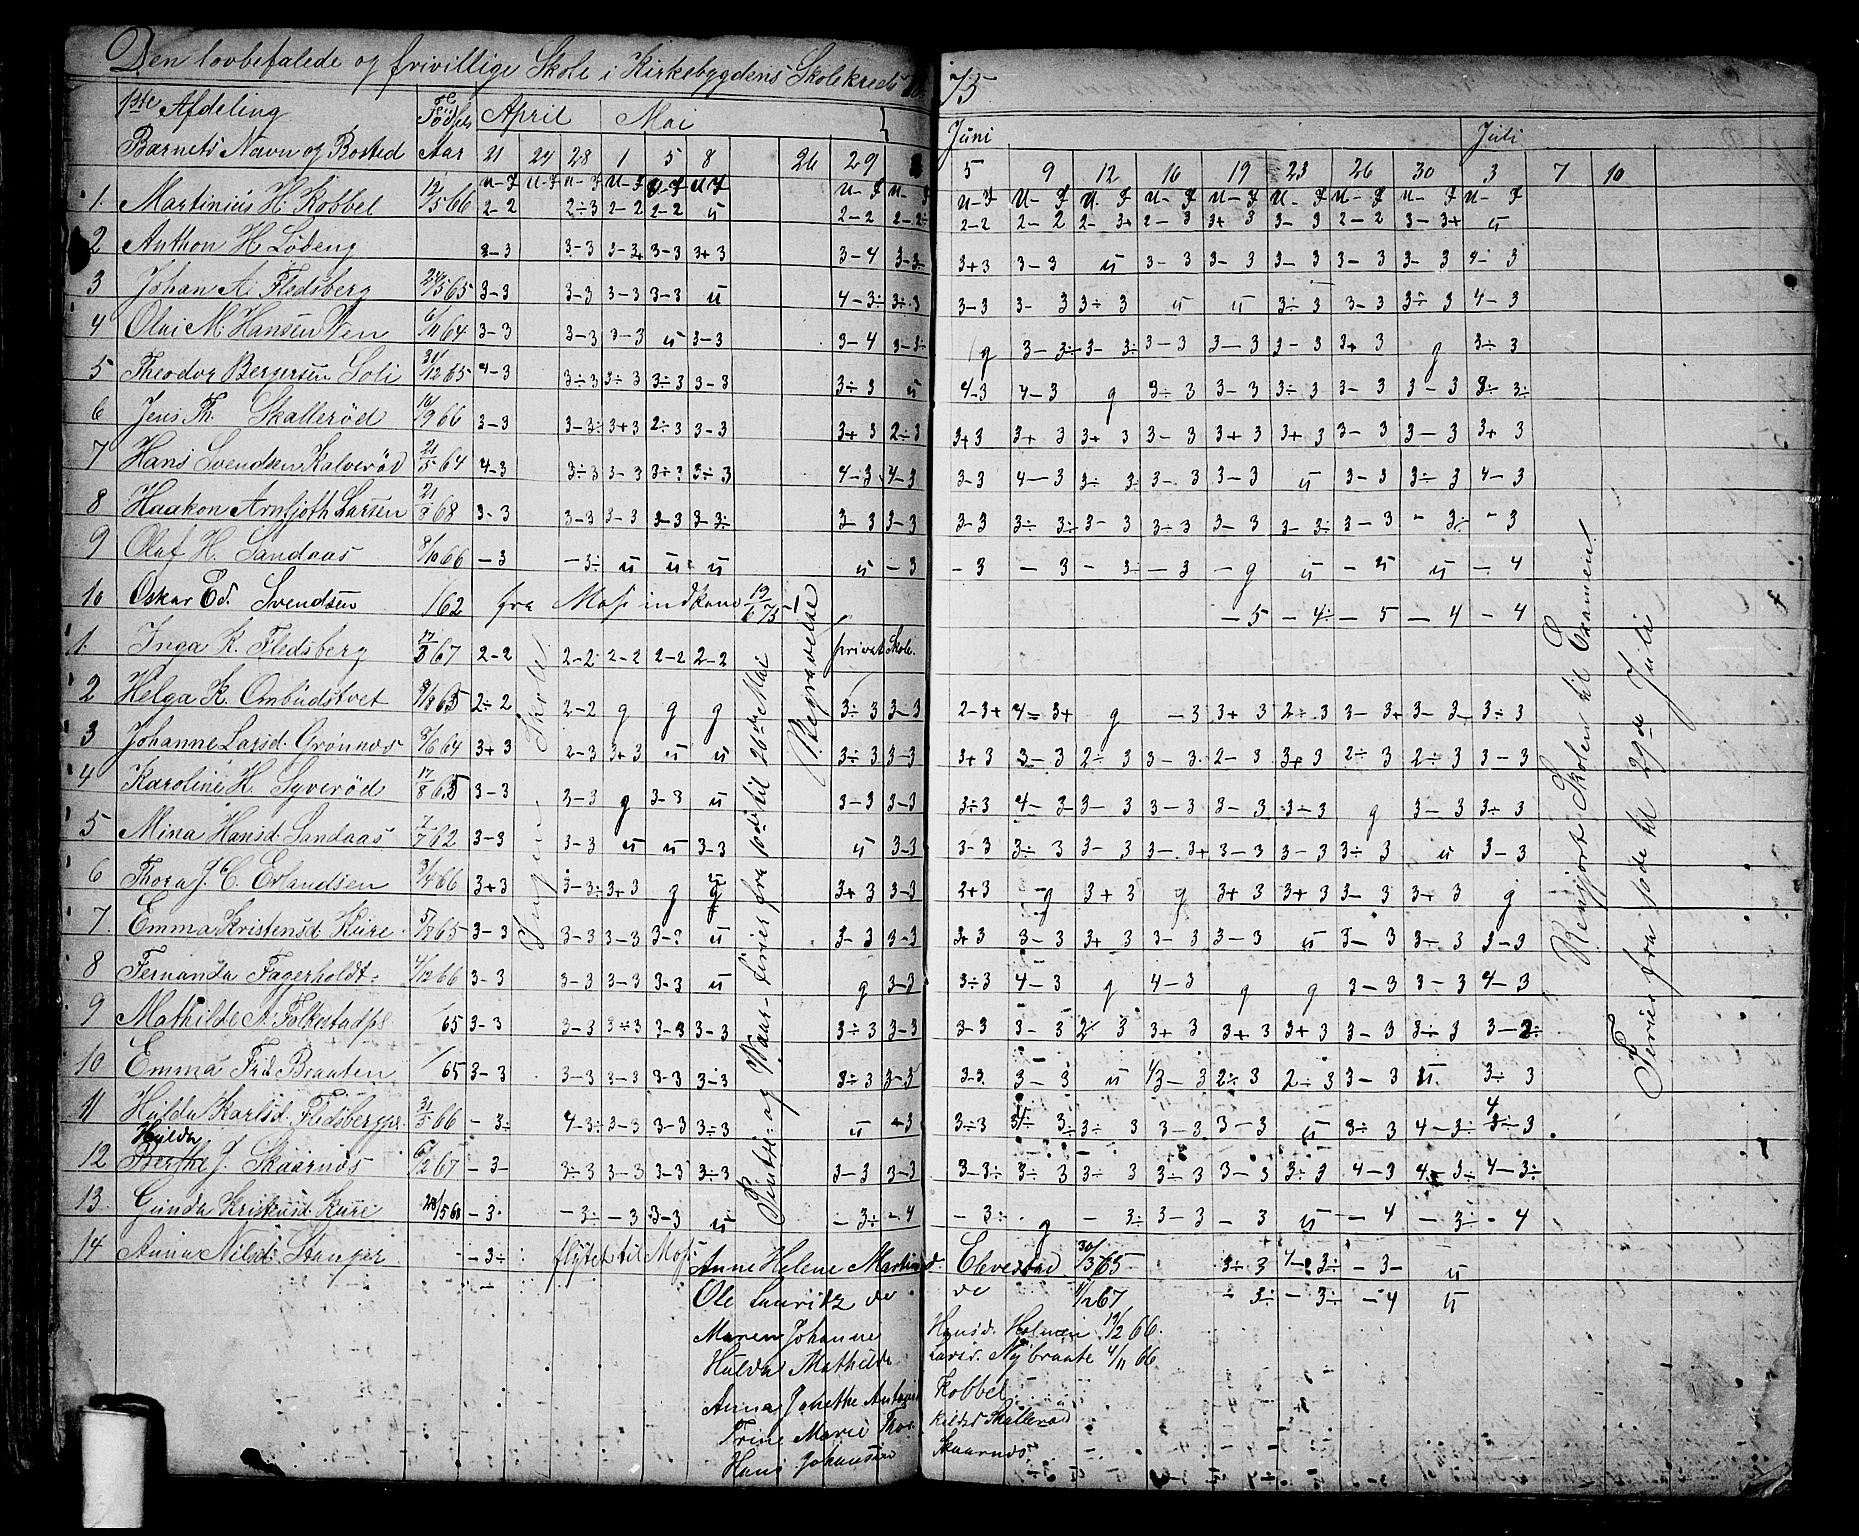 Den lovbefalede og frivillige Skole i Kirkebygdens Skolekreds 75
1ste Afdeling Fødsels April Mai Juni Juli
Barnets Navn og Bosted Aar 21 24 28 1 5 8 26 29 5 9 12 16 19 23 26 30 3 7 10
1. Martinius H. Kobbel 12/5 66 2-2 2÷3 2-2 2-2 u 2-2 2-2÷ 2-2 2-2 2-3+ 2-3 3+3 3-3 2-2 3-3+ u
2 Anthon H Lødeng 3-3 3-3 3-3+ 3-3 3+3 3-4 3-3÷ 3+3 3-3 u 3-3 3-3 3-3 3-3 3-3
3 Johan A. Fledsberg 24/5 65 3-3 3-3 3-3 3-3 u 4-3÷ 3÷3 3-3 3-3 3÷3 u u 3÷3 3-3 3÷3 4-3
4 Olai M. Hansen Ven 6/11 64 3-3 3-3 3-3 u 3-3 3-4 3-3÷ g 3-3÷ 3-3÷ 3-3 3-3 3-3 3+3 g 3÷3
5 Theodor Bergersen Soli 31/12 65 4-3 3÷3 3÷3 3÷3 3-3 3÷3 u 4-3 4-3 g 3÷3 3-3 3÷3 3-3 3-3 3-3÷
6 Jens Th. Skallerød 16/9 66 3-3 3-3÷ 3+3 2÷3 3-3 3+3 2÷3 3+3 3+3 3+3 3-3 3+3 3+3 3-3 3-3 3+3
7 Hans Svendsen Kalverød 21/5 64 4-3 3÷3 3-3 3÷3 3÷3 4-3 4-3 3-3 4-3 3÷3 3-3 3-3 u 3-3 3÷3 4-3
8 Haakon Arnljoth Larsen 21/8 68 3-3 3-3 3-3 3-3 3-3÷ 3-3 3-3 3-3 3÷3÷ 3-3 3÷3 3-3 3-3÷ 3-3 -3÷ -3
9 Olaf H. Sandaas 8/10 66 -3 -3÷ u u u u -3 -3 -3 -3÷ -3 -g u -u u -4
10 Oskar Ed. Svendsen /62 fra Moss indkom 19/6 75 -5 -4÷ -5 -4 -4
1. Inga K. Fledsberg 17/3 67 2-2 2-2 2-2 2-2 2-2 privat Skole.
2 Helga K. Ombudstvet 8/8 65 2÷2 2-2 g g g 3÷3 3-3 2-3+ 4-3+ g -3 3+3 2÷3 3-3+ 3-3 3÷3
3 Johanne Larsd. Grønnæs 8/6 64 3+3 2-3 3+3 u u 3÷3 3-3 3+3 3-3 2÷3 3-3 2-3 3+3 2÷3 2÷3 3-3
4 Karoline H. Syverød 17/8 65 3-3 3-3 g 3-3 u 3-3 3-3 3÷3 4-3 3-3 3-3 3-3 3÷3 g 3-3 3÷3
5 Mina Hansd. Sandaas 7/7 62 3-3 3-3 u u 3-3 u 3-3 3-3 3÷3 3-3 3-3+ 3-3 3-3 3÷3 u 3-3
6 Thora J. C. Erlandsen 3/4 66 3+3 3-3÷ 3+3 g g 3+3 3-3 3+3 g 3+3 g 3+3 3+3 3-3 3-3 g
7. Emma Kristensd. Kure 5/7 65 3-3 3-3 3-3 3-3 u 3-3 3-3 3+3 3-3 3+3 3-3 3-3 u 3-3 3-3 3-3
8 Fernanda Fagerholdt 4/12 66 3-3 3-3 3-3 3-3 u g 3-3 3÷3 4-3 g 4-3 g g 3-3 3-3 4-3
9 Mathilde A. Folkestadpl. /65 3-3 3-3 3÷3 3-3 3-3 3÷3 3-3 3-3 3-3 2÷3 3+3 3+3 3+3 3-3 3÷3 3-2÷
10 Emma Frid. Braaten /65 3-3 3-3 3-3 3-3 3÷3 3÷3 3-3 3-3 3-3 u 4/3-3 2÷3 2÷3 3-3 u 3÷3
11 Hulda Karlsd. Fledsbergpl. 31/5 66 -3÷ 4-3÷ 3-3 3-3 3÷3 u -3 3÷3 3-3÷ 3÷3 3-3 3-3 u 3÷3 4-3÷ 3-3
Hulda
12 Berthe J. Skaarnæs 6/2 67 -3- 3÷3 3-3 3-3 3÷3 3-3 3-3 3-3÷ 3÷3 3÷3 3÷3 3-3 3÷3 4-3 4-3÷ 4-3÷
13. Gunda Kristensd. Kure 28/5 68 -3 -3÷ -3 3-3 u -3÷ -4 -3÷ g -3÷ 3-3 -3 u -4 -3÷ -4
14 Anna Nilsd. Stanger -3÷ flyttet til Moss
Ingen Skole
Pintse- og Vaar-ferier fra 10de til 26de Mai
Begravelse
Rengjort Skolen til Examen
Ferier fra 10de til 29de Juli
Anne Helene Martinsd. Elvestad 30/3 65 3÷3 4-3÷ -3- u
Ole Lauritz do do 1/12 67 -3÷ -3÷ -4 u
Maren Johanne Hansd. Holmen 19/2 66
Hulda Mathilde Larsd. Nybraate 4/11 66
Anna Johethe Kobbel
Trine Marie Skallerød
Hans Johansen Skaarnæs